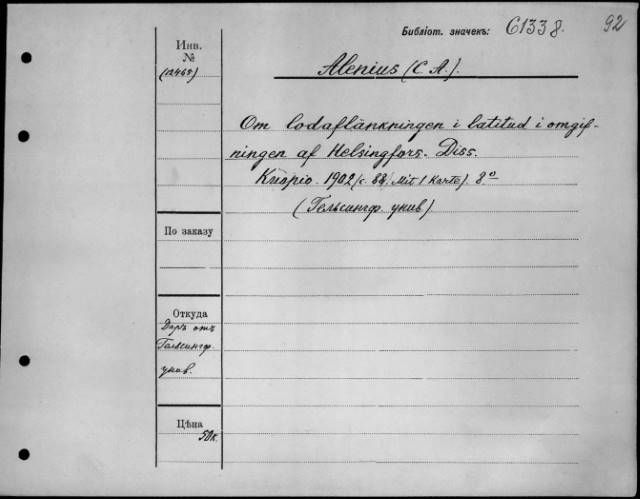 Библіот. значекъ: C1338. 92
Инв.
№
(12465)
Alenius (C A.).
Om lodaflänkningen i latitud i omgif-
ningen af Helsingfors. Diss.
Kuopio. 1902 (с. 88. Mit 1 Karte). 8°
(Гельсингф. унив)
По заказу
Откуда
Даръ отъ
Гельсингф.
унив.
Цѣна
50к.